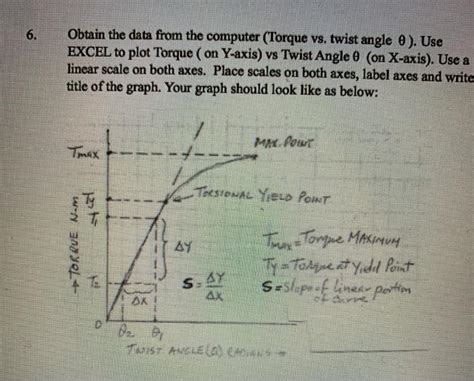 6. Obtain the data from the computer (Torque vs. twist angle θ ). Use
EXCEL to plot Torque ( on Y-axis) vs Twist Angle θ (on X-axis). Use a
linear scale on both axes. Place scales on both axes, label axes and write
title of the graph. Your graph should look like as below:
MAX. POINT
TMAX
TORSIONAL YIELD POINT
Ty
T1
→TORQUE N-m
ΔY
Tmax = Torque MAXIMUM
Ty = Torque at Yield Point
S = ΔY/ΔX
S = Slope of linear portion
of curve
T2
ΔX
0 θ2 θ1
TWIST ANGLE (θ) RADIANS →